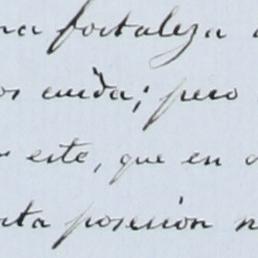 na fortaleza
os cuida; pero
este, que en
posesion